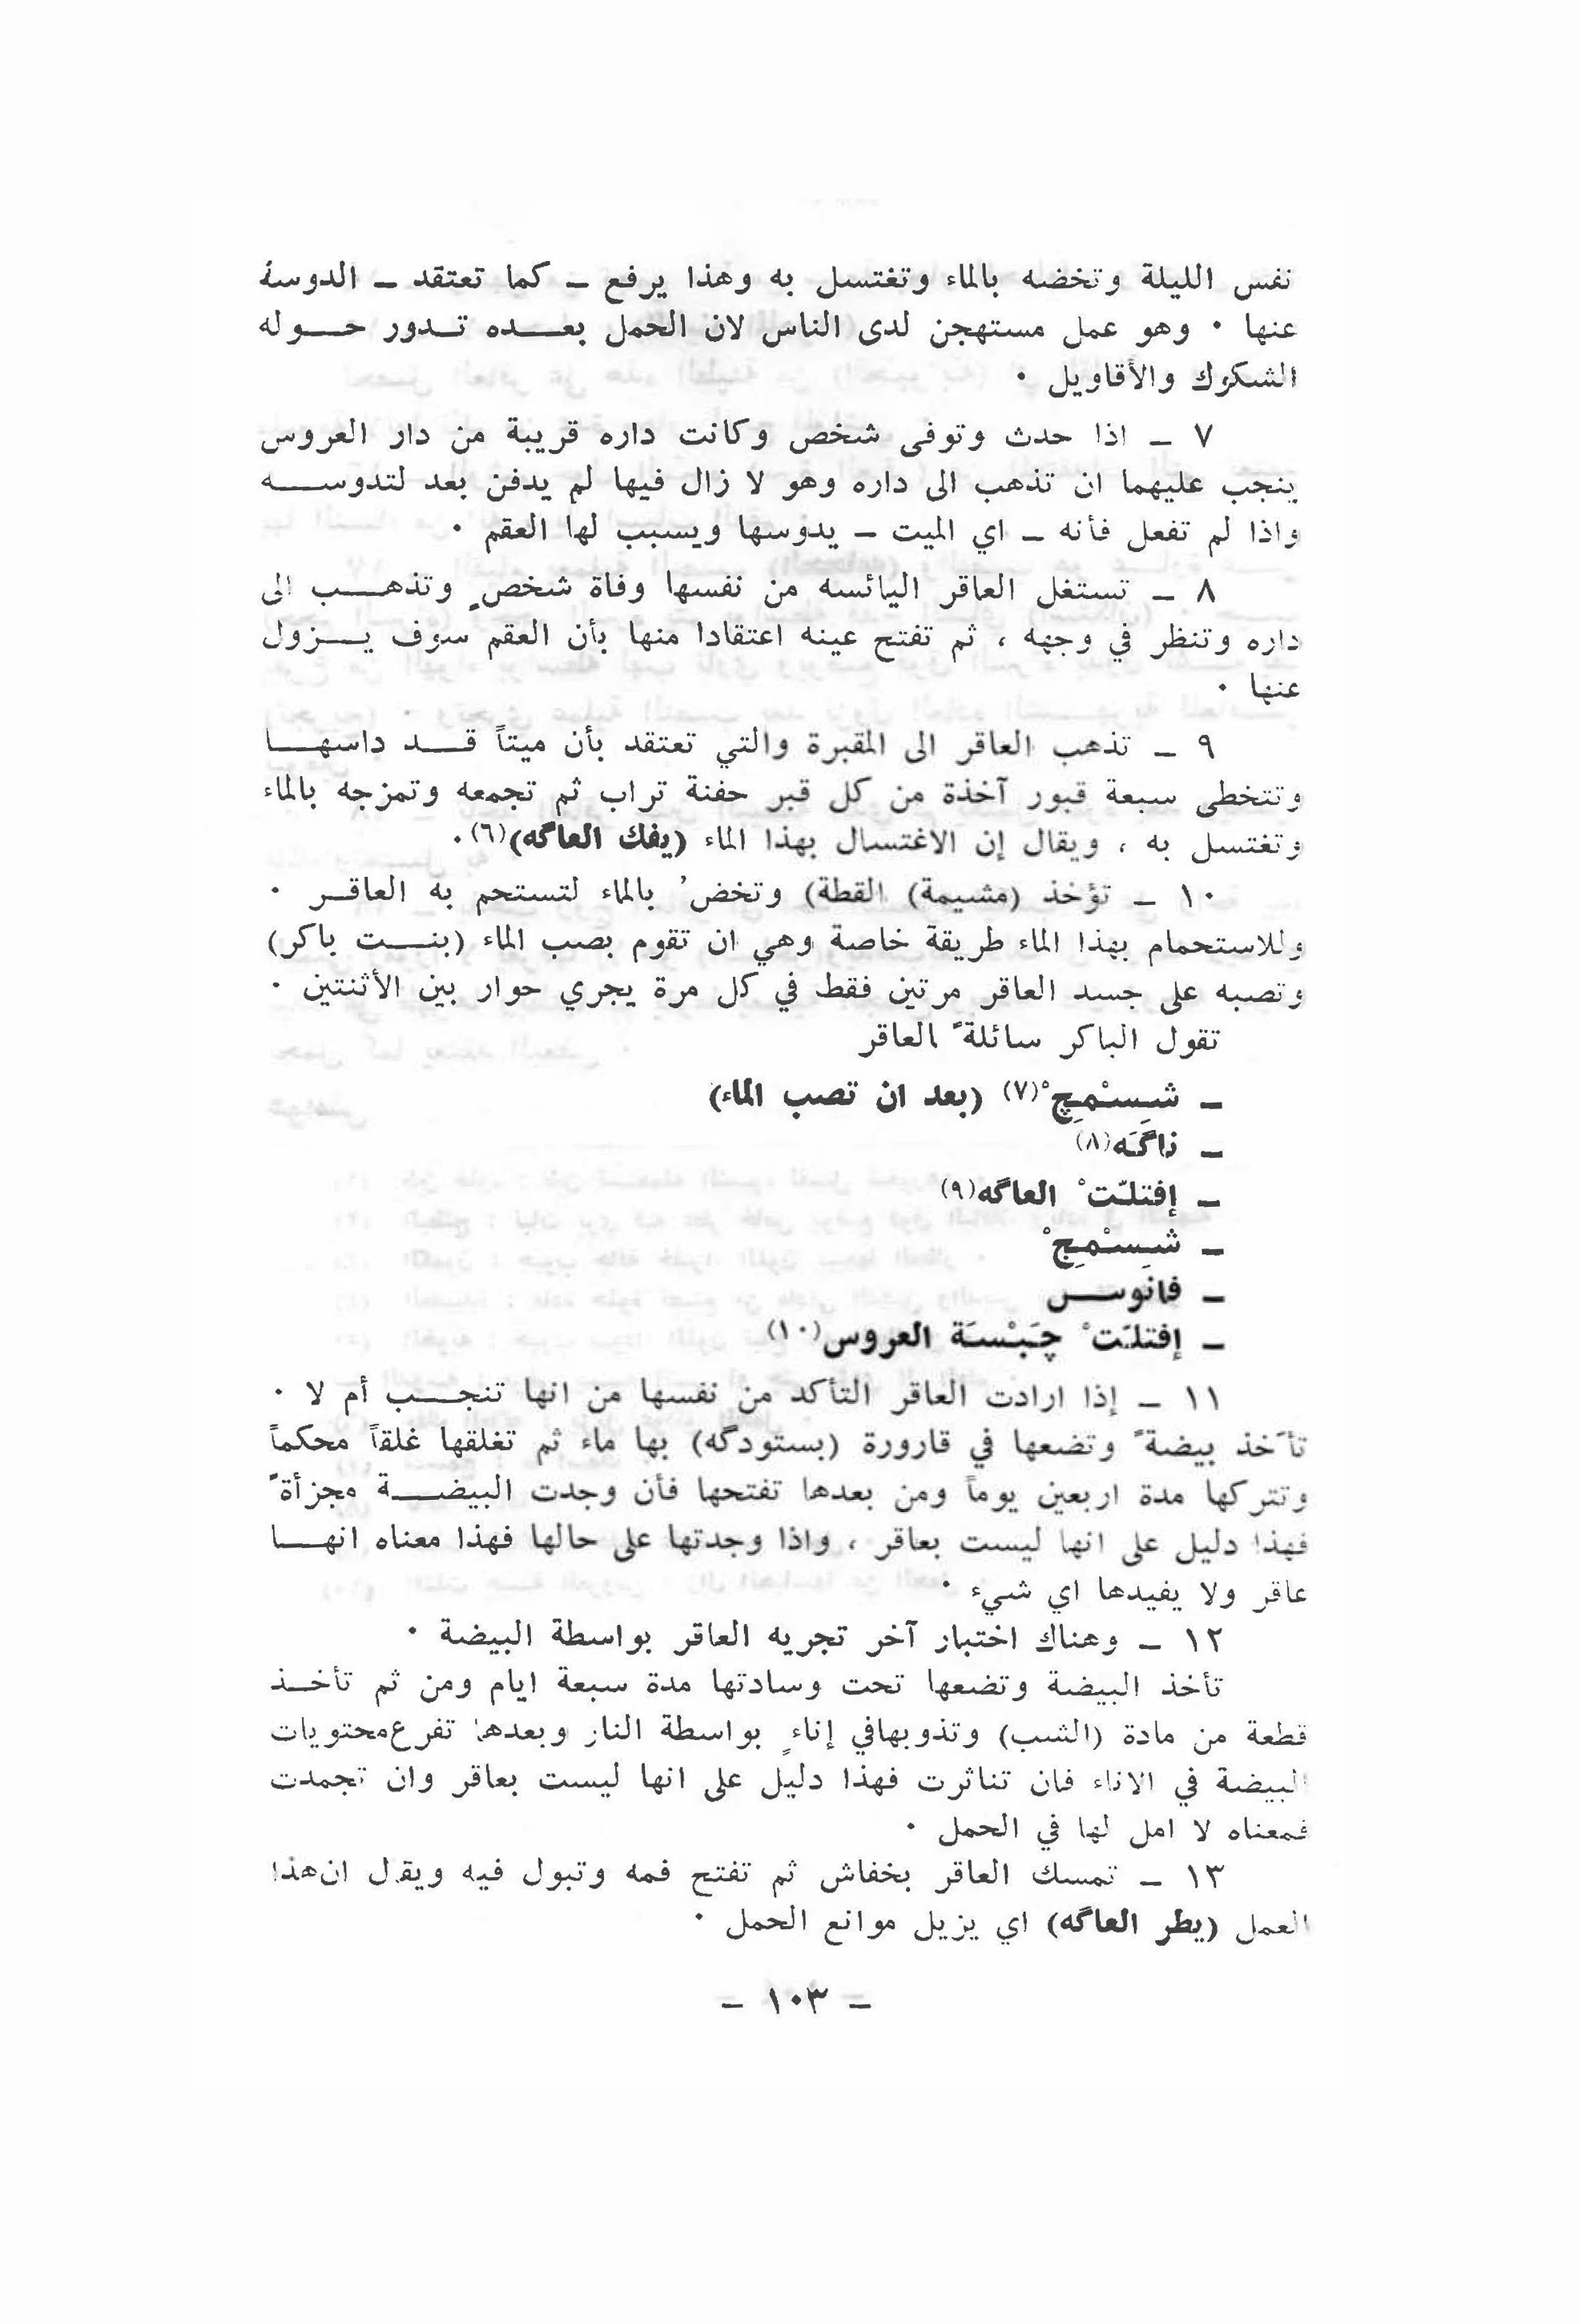 نفس الليلة وتخضه بالماء وتغتسل به وهذا يرفع – كما تعتقد – الدوسة
عنها ٠ وهو عمل مستهجن لدى الناس لان الحمل بعـــده تـدور حـــوله
الشكوك والأقاويل ٠
٧ – اذا حدث وتوفى شخص وكانت داره قريبة من دار العروس
ينجب عليهما ان تذهب الى داره وهو لا زال فيها لم يدفن بعد لتدوســـه
واذا لم تفعل فأنه – اي الميت – يدوسها ويسبب لها العقم ٠
٨ – تستغل العاقر اليائسه من نفسها وفاة شخصٍ وتذهـــب الى
داره وتنظر في وجهه ، ثم تفتح عينه اعتقادا منها بأن العقم سوف يـــزول
عنها ٠
٩ – تذهب العاقر الى المقبرة والتي تعتقد بأن ميتاً قـــد داسهـــا
وتتخطى سبعة قبور آخذة من كل قبر حفنة تراب ثم تجمعه وتمزجه بالماء
وتغتسل به ، ويقال إن الاغتسال بهذا الماء (يفك العاگه)(٦) ٠
١٠ – تؤخذ (مشيمة) القطة) وتخضُ بالماء لتستحم به العاقـر ٠
وللاستحمام بهذا الماء طريقة خاصة وهي ان تقوم بصب الماء (بنـــت باكر)
وتصبه على جسد العاقر مرتين فقط في كل مرة يجري حوار بين الأثنتين ٠
تقول الباكر سائلةً العاقر
– شِسْمِچْ(٧) (بعد ان تصب الماء)
– ناگَه(٨)
– إفتلـّتْ العاگه(٩)
– شِسْمِچْ
– فانوســـس
– إفتلـّتْ چَبْسَة العروس(١٠)
١١ – إذا ارادت العاقر التأكد من نفسها من انها تنجـــب أم لا ٠
تأَخذ بيضةً وتضعها في قارورة (بستودگه) بها ماء ثم تغلقها غلقاً محكماً
وتتركها مدة اربعين يوماً ومن بعدها تفتحها فأن وجدت البيضـــة مجزأةً
فهذا دليل على انها ليست بعاقر ، واذا وجدتها على حالها فهذا معناه انهـــا
عاقر ولا يفيدها اي شيء ٠
١٢ – وهناك اختبار آخر تجريه العاقر بواسطة البيضة ٠
تأخذ البيضة وتضعها تحت وسادتها مدة سبعة ايام ومن ثم تأخـذ
قطعة من مادة (الشب) وتذوبهافي إناءٍ بواسطة النار وبعدها تفرغ محتويات
البيضة في الاناء فان تناثرت فهذا دليل على انها ليست بعاقر وان تجمدت
فمعناه لا امل لها في الحمل ٠
١٣ – تمسك العاقر بخفاش ثم تفتح فمه وتبول فيه ويقال ان هذا
العمل (يطر العاگه) اي يزيل موانع الحمل ٠
– ١٠٣ –